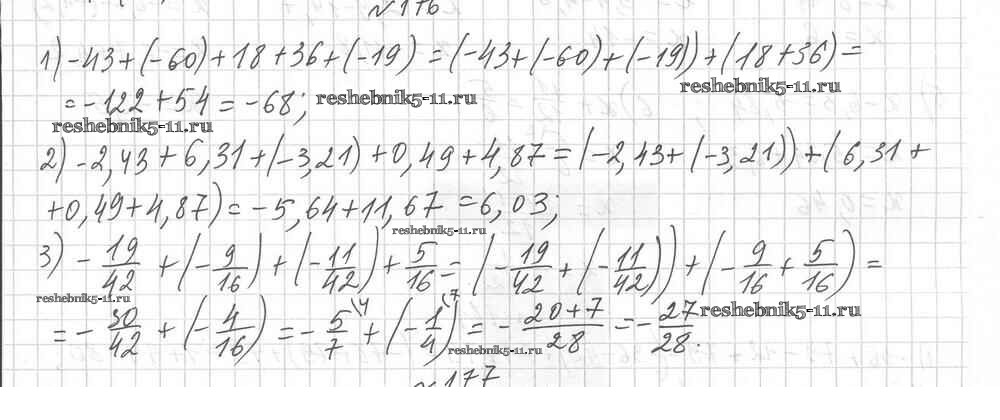 №176
1) -43+(-60)+18+36+(-19) = (-43+(-60)+(-19))+(18+36) =
= -122+54 = -68; reshebnik5-11.ru reshebnik5-11.ru
reshebnik5-11.ru
2) -2,43+6,31+(-3,21)+0,49+4,87=(-2,43+(-3,21))+(6,31+
+0,49+4,87)=-5,64+11,67=6,03;
reshebnik5-11.ru
3) -19/42+(-9/16)+(-11/42)+5/16=(-19/42+(-11/42))+(-9/16+5/16)=
reshebnik5-11.ru reshebnik5-11.ru
=-30/42+(-4/16)=-5/7\4+(-1/4\7)=-20+7/28=-27/28.
reshebnik5-11.ru
№177